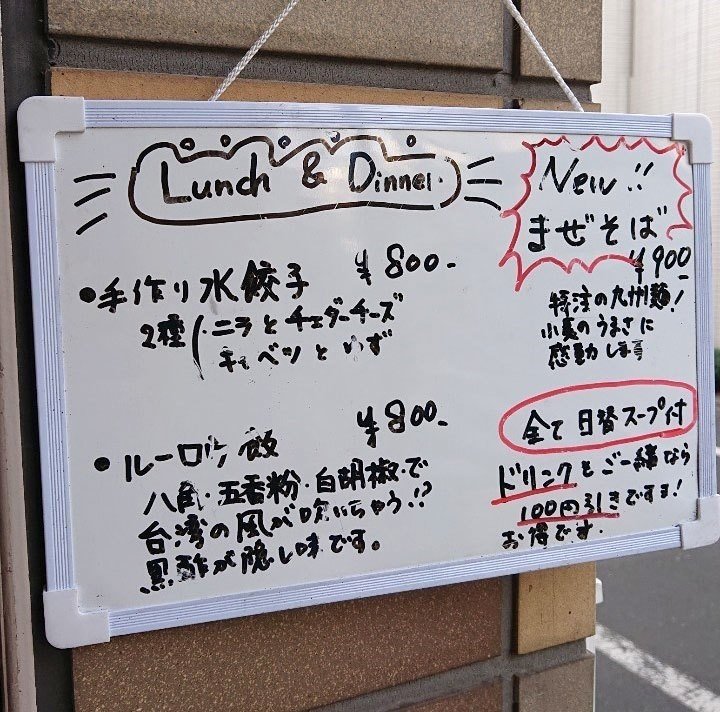 Lunch & Dinner
・手作り水餃子 ¥800-
2種(・ニラとチェダーチーズ
キャベツとゆず
・ルーロー飯 ¥800-
八角・五香粉・白胡椒・で
台湾の風が吹いちゃう!?
黒酢が隠し味です。
New!!
まぜそば
¥900-
特注の九州麺!
小麦のうまさに
感動します
全て日替スープ付
ドリンクもご一緒なら
100円引きですヨ!
お得です。